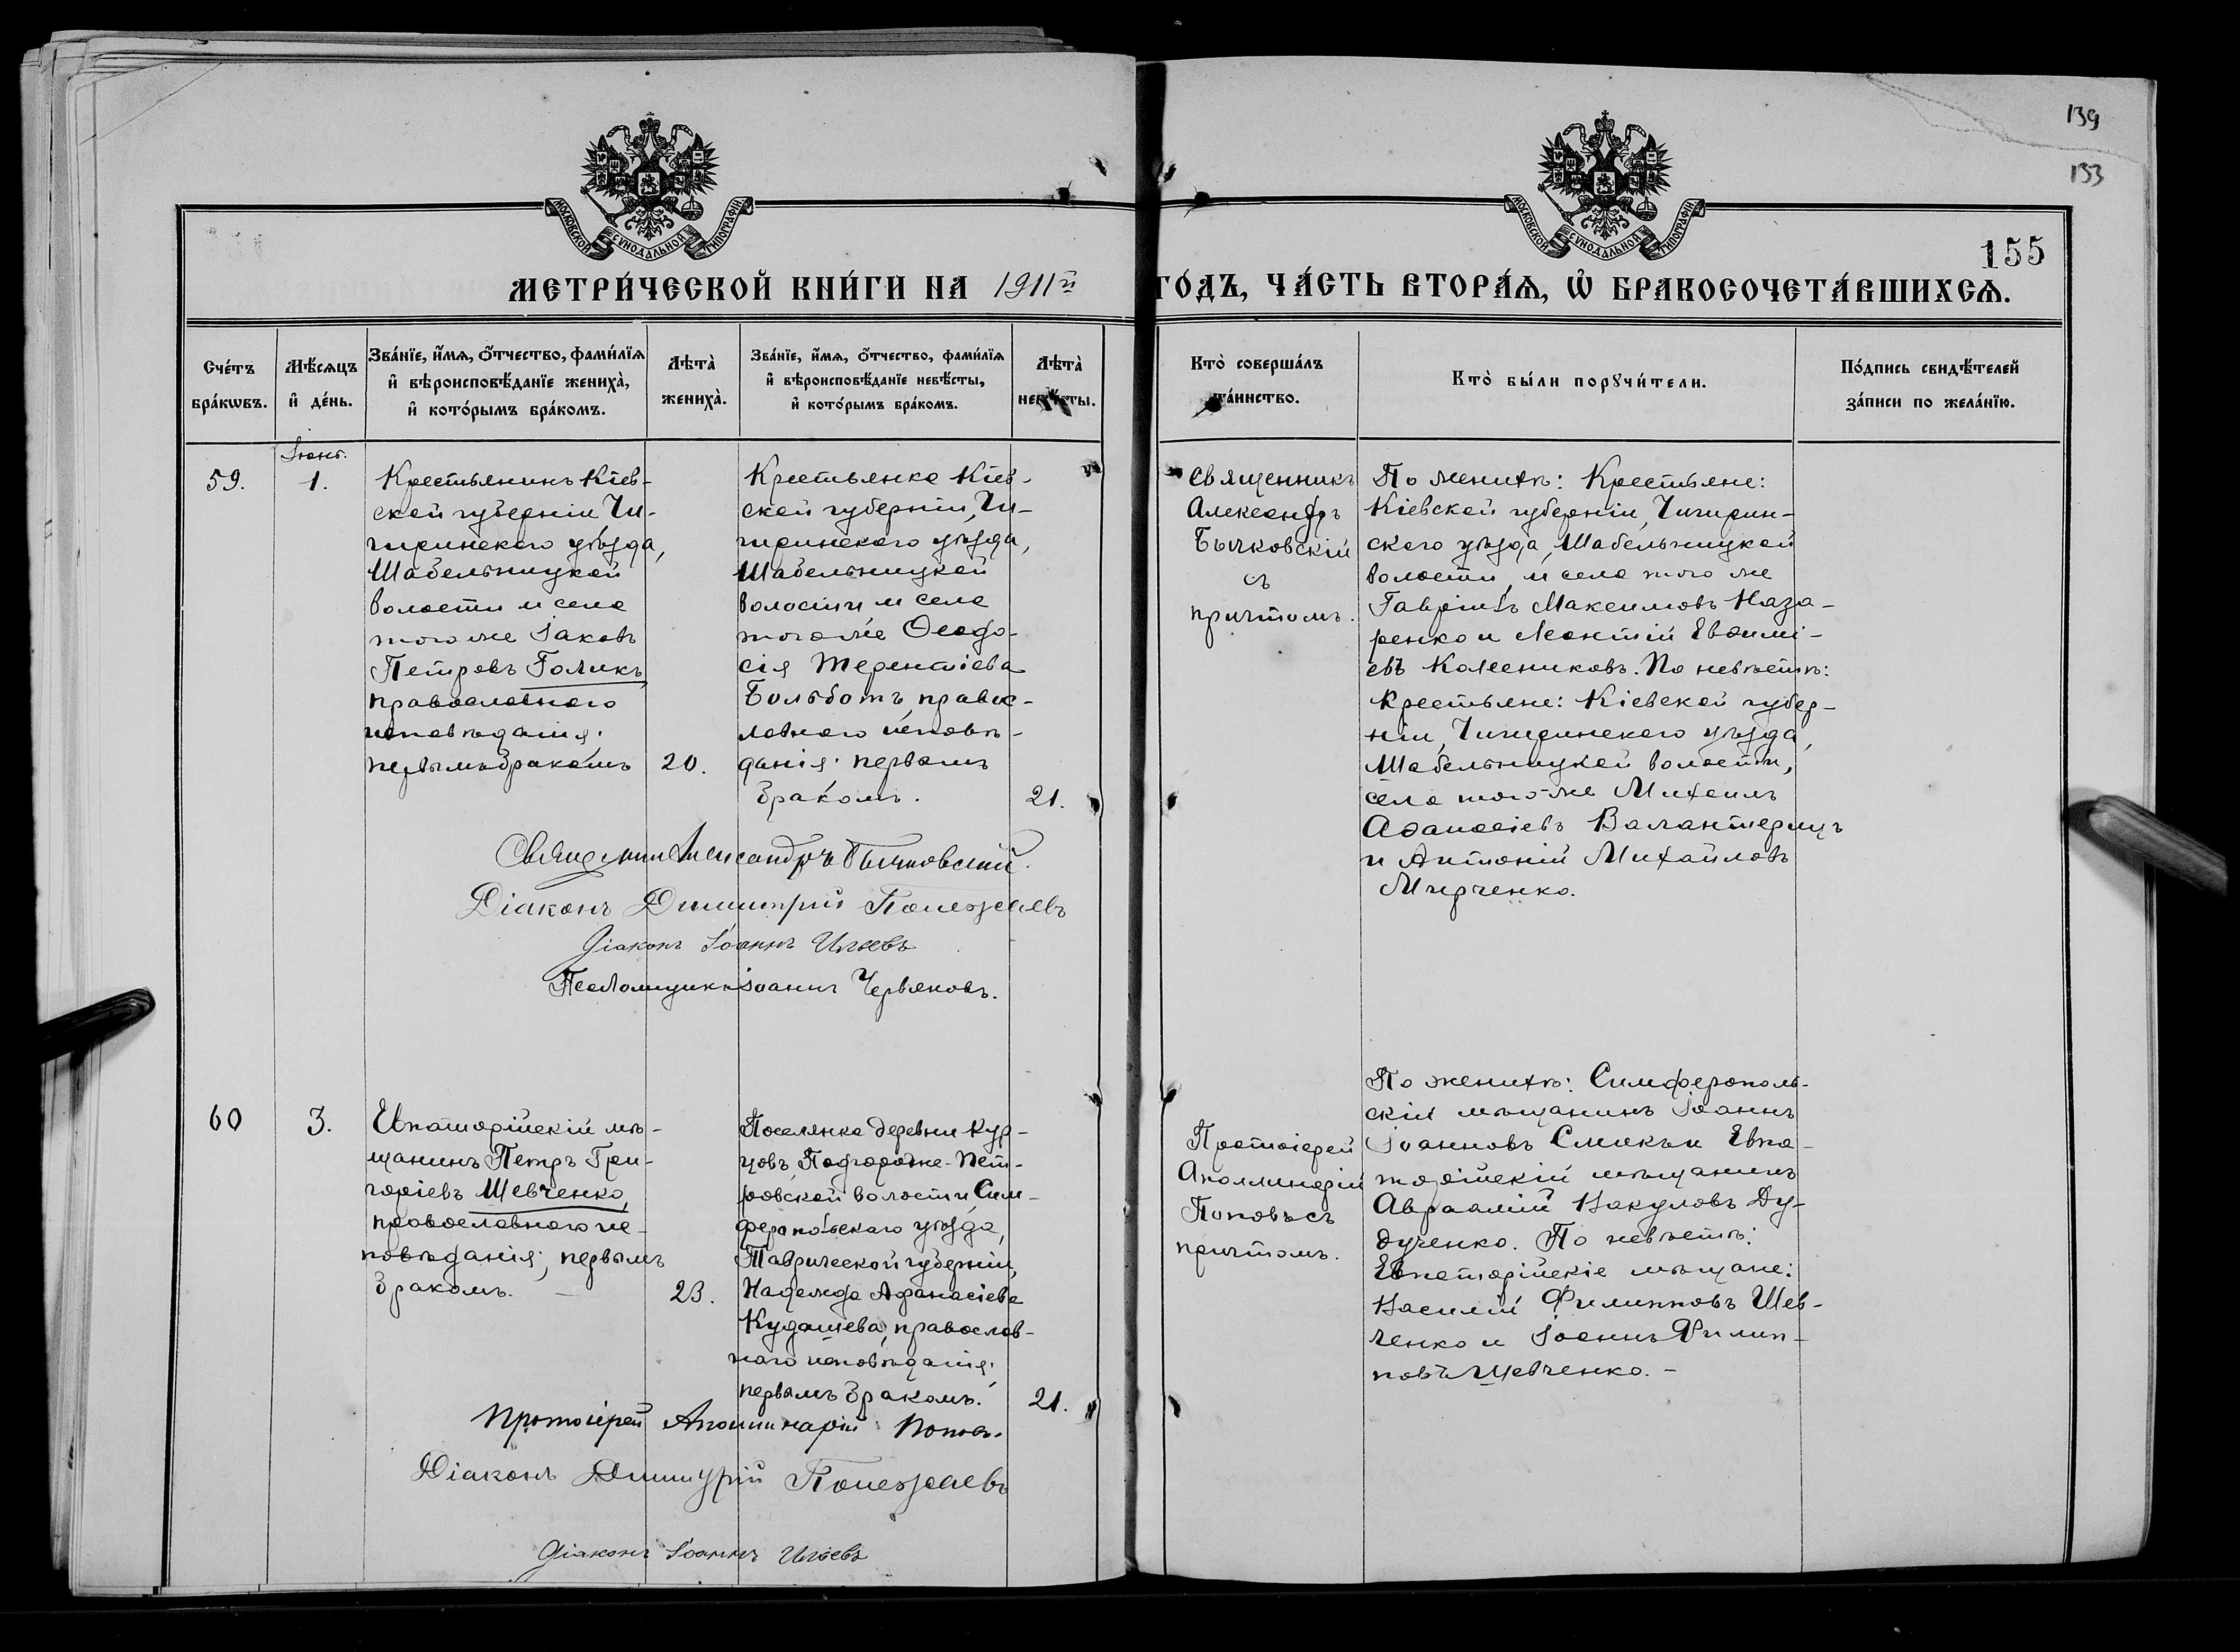 139
153
155
МОСКОВСКОЙ СѴНОДАЛЬНОЙ ТИПОГРАФІИ
МОСКОВСКОЙ СѴНОДАЛЬНОЙ ТИПОГРАФІИ
МЕТРИ́ЧЕСКОЙ КНИ́ГИ НА 1911й ГО́ДЪ, ЧА́СТЬ ВТОРА́Ѧ, Ѡ҆ БРАКОСОЧЕТА́ВШИХСѦ.
Сче́тъ
бра́кѡвъ.
Мѣ́сѧцъ
и҆ де́нь.
Зва́нїе, и҆́мѧ, ѻ҆́тчество, фами́лїѧ
и҆ вѣроисповѣ́данїе жениха̀,
и҆ кото́рымъ бра́комъ.
Лѣта̀
жениха̀.
Зва́нїе, и҆́мѧ, ѻ҆́тчество, фами́лїѧ
и҆ вѣроисповѣ́данїе невѣ́сты,
и҆ кото́рымъ бра́комъ.
Лѣта̀
невѣ́сты.
Кто̀ соверша́лъ
та́инство.
Кто̀ бы́ли порꙋчи́тели.
По́дпись свидѣ́телей
за́писи по жела́нїю.
Іюнь.
59.
1.
Крестьянинъ Кіев-
ской губерніи, Чи-
гиринскаго уѣзда,
Шабельницкой
волости и села
того же Іаковъ
Петровъ Голикъ,
православнаго
исповѣданія;
первымъ бракомъ
20.
Крестьянка Кіев-
ской губерніи, Чи-
гиринскаго уѣзда,
Шабельницкой
волости и села
того же Ѳеодо-
сія Терентіева
Больботъ, правос-
лавнаго исповѣ-
данія; первымъ
бракомъ.
21.
Священникъ
Александръ
Бычковскій
съ
причтомъ.
По женихѣ: Крестьяне:
Кіевской губерніи, Чигирин-
скаго уѣзда, Шабельницкой
волости и села того же
Гавріилъ Максимовъ Наза-
ренко и Леонтій Евѳимі-
евъ Колесниковъ. По невѣстѣ:
Крестьяне: Кіевской губер-
ніи, Чигиринскаго уѣзда,
Шабельницкой волости,
села того-же Михаилъ
Аѳанасіевъ Валантерицъ
и Антоній Михаиловъ
Мирченко.
Священникъ Александръ Бычковскій.
Діаконъ Димитрій Полежаевъ
Діаконъ Іоаннъ Ильевъ
Псаломщикъ Іоаннъ Червяковъ.
60
3.
Евпаторійскій мѣ-
щанинъ Петръ Гри-
горіевъ Шевченко,
православнаго ис-
повѣданія; первымъ
бракомъ. —
23.
Поселянка деревни Кур-
цовъ Подгородне-Пет-
ровской волости, Сим-
феропольскаго уѣзда,
Таврической губерніи,
Надежда Афанасіева
Кудашева, православ-
наго исповѣданія;
первымъ бракомъ.
21.
Протоіерей
Аполлинарій
Поповъ съ
причтомъ.
По женихѣ: Симферополь-
скій мѣщанинъ Іоаннъ
Іоанновъ Смикъ и Евпа-
торійскій мѣщанинъ
Авраамій Вакуловъ Ду-
дученко. По невѣстѣ:
Евпаторійскіе мѣщане:
Василій Филипповъ Шев-
ченко и Іоаннъ Филип-
повъ Шевченко. —
Протоіерей Аполлинарій Поповъ.
Діаконъ Димитрій Полежаевъ
Діаконъ Іоаннъ Ильевъ